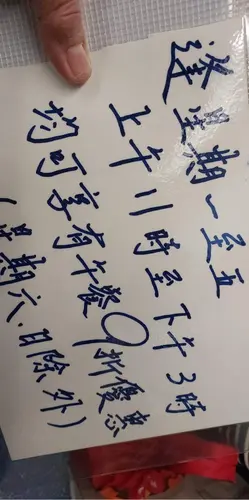 逢星期一至五
上午11時至下午3時
均可享有午餐9折優惠
(星期六、日除外)